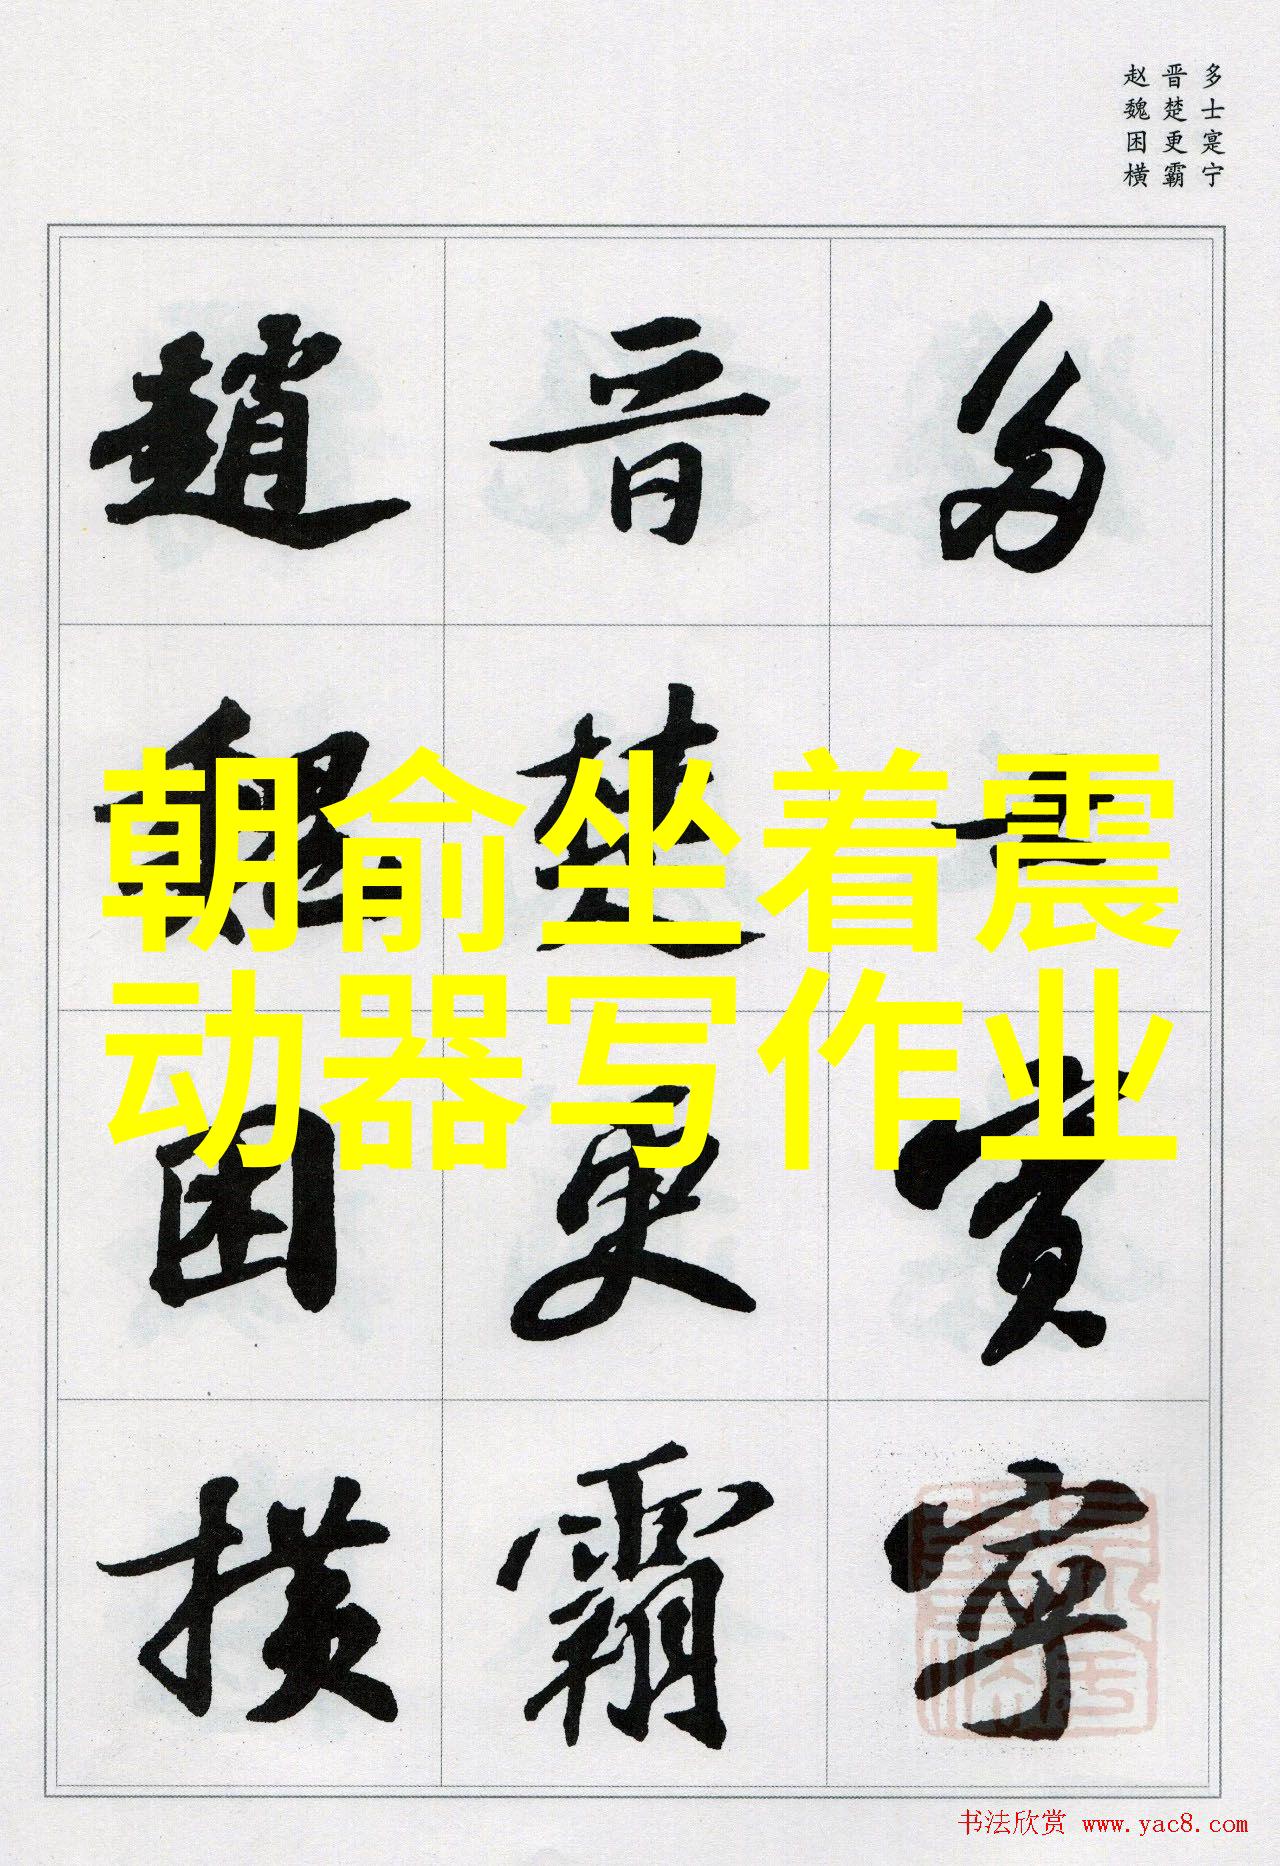 多士寔宁
晋楚更霸
赵魏困横
多士寔寧
晋楚更霸
趙魏困横
朝俞坐着震
动器写作业
书法欣赏 www.yac8.com